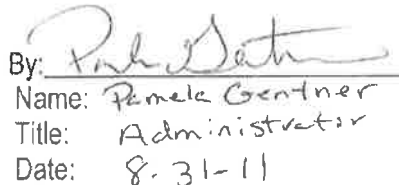 By:
Name: Pamela Gentner
Title: Administrator
Date: 8-31-11